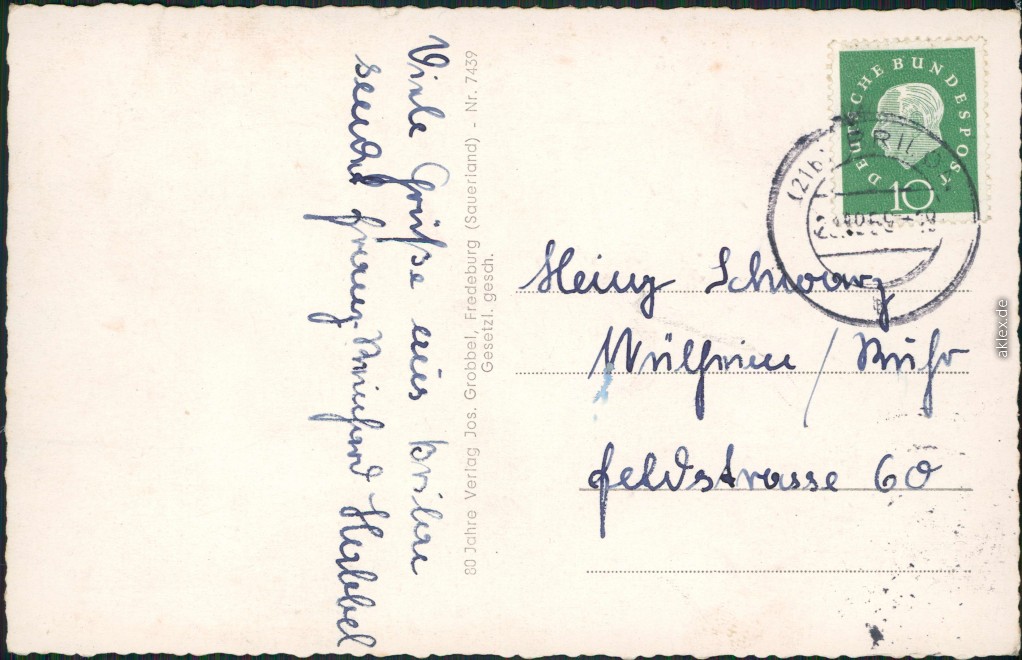 Viele Grüße aus Brilon
sendet Franz-Reinhard Hubbel
80 Jahre Verlag Jos. Grobbel, Fredeburg (Sauerland) - Nr. 7439
Gesetzl. gesch.
DEUTSCHE BUNDESPOST
10
(21b) BRILON
Heinz Schwarz
Mülheim / Ruhr
Feldstrasse 60
aklex.de